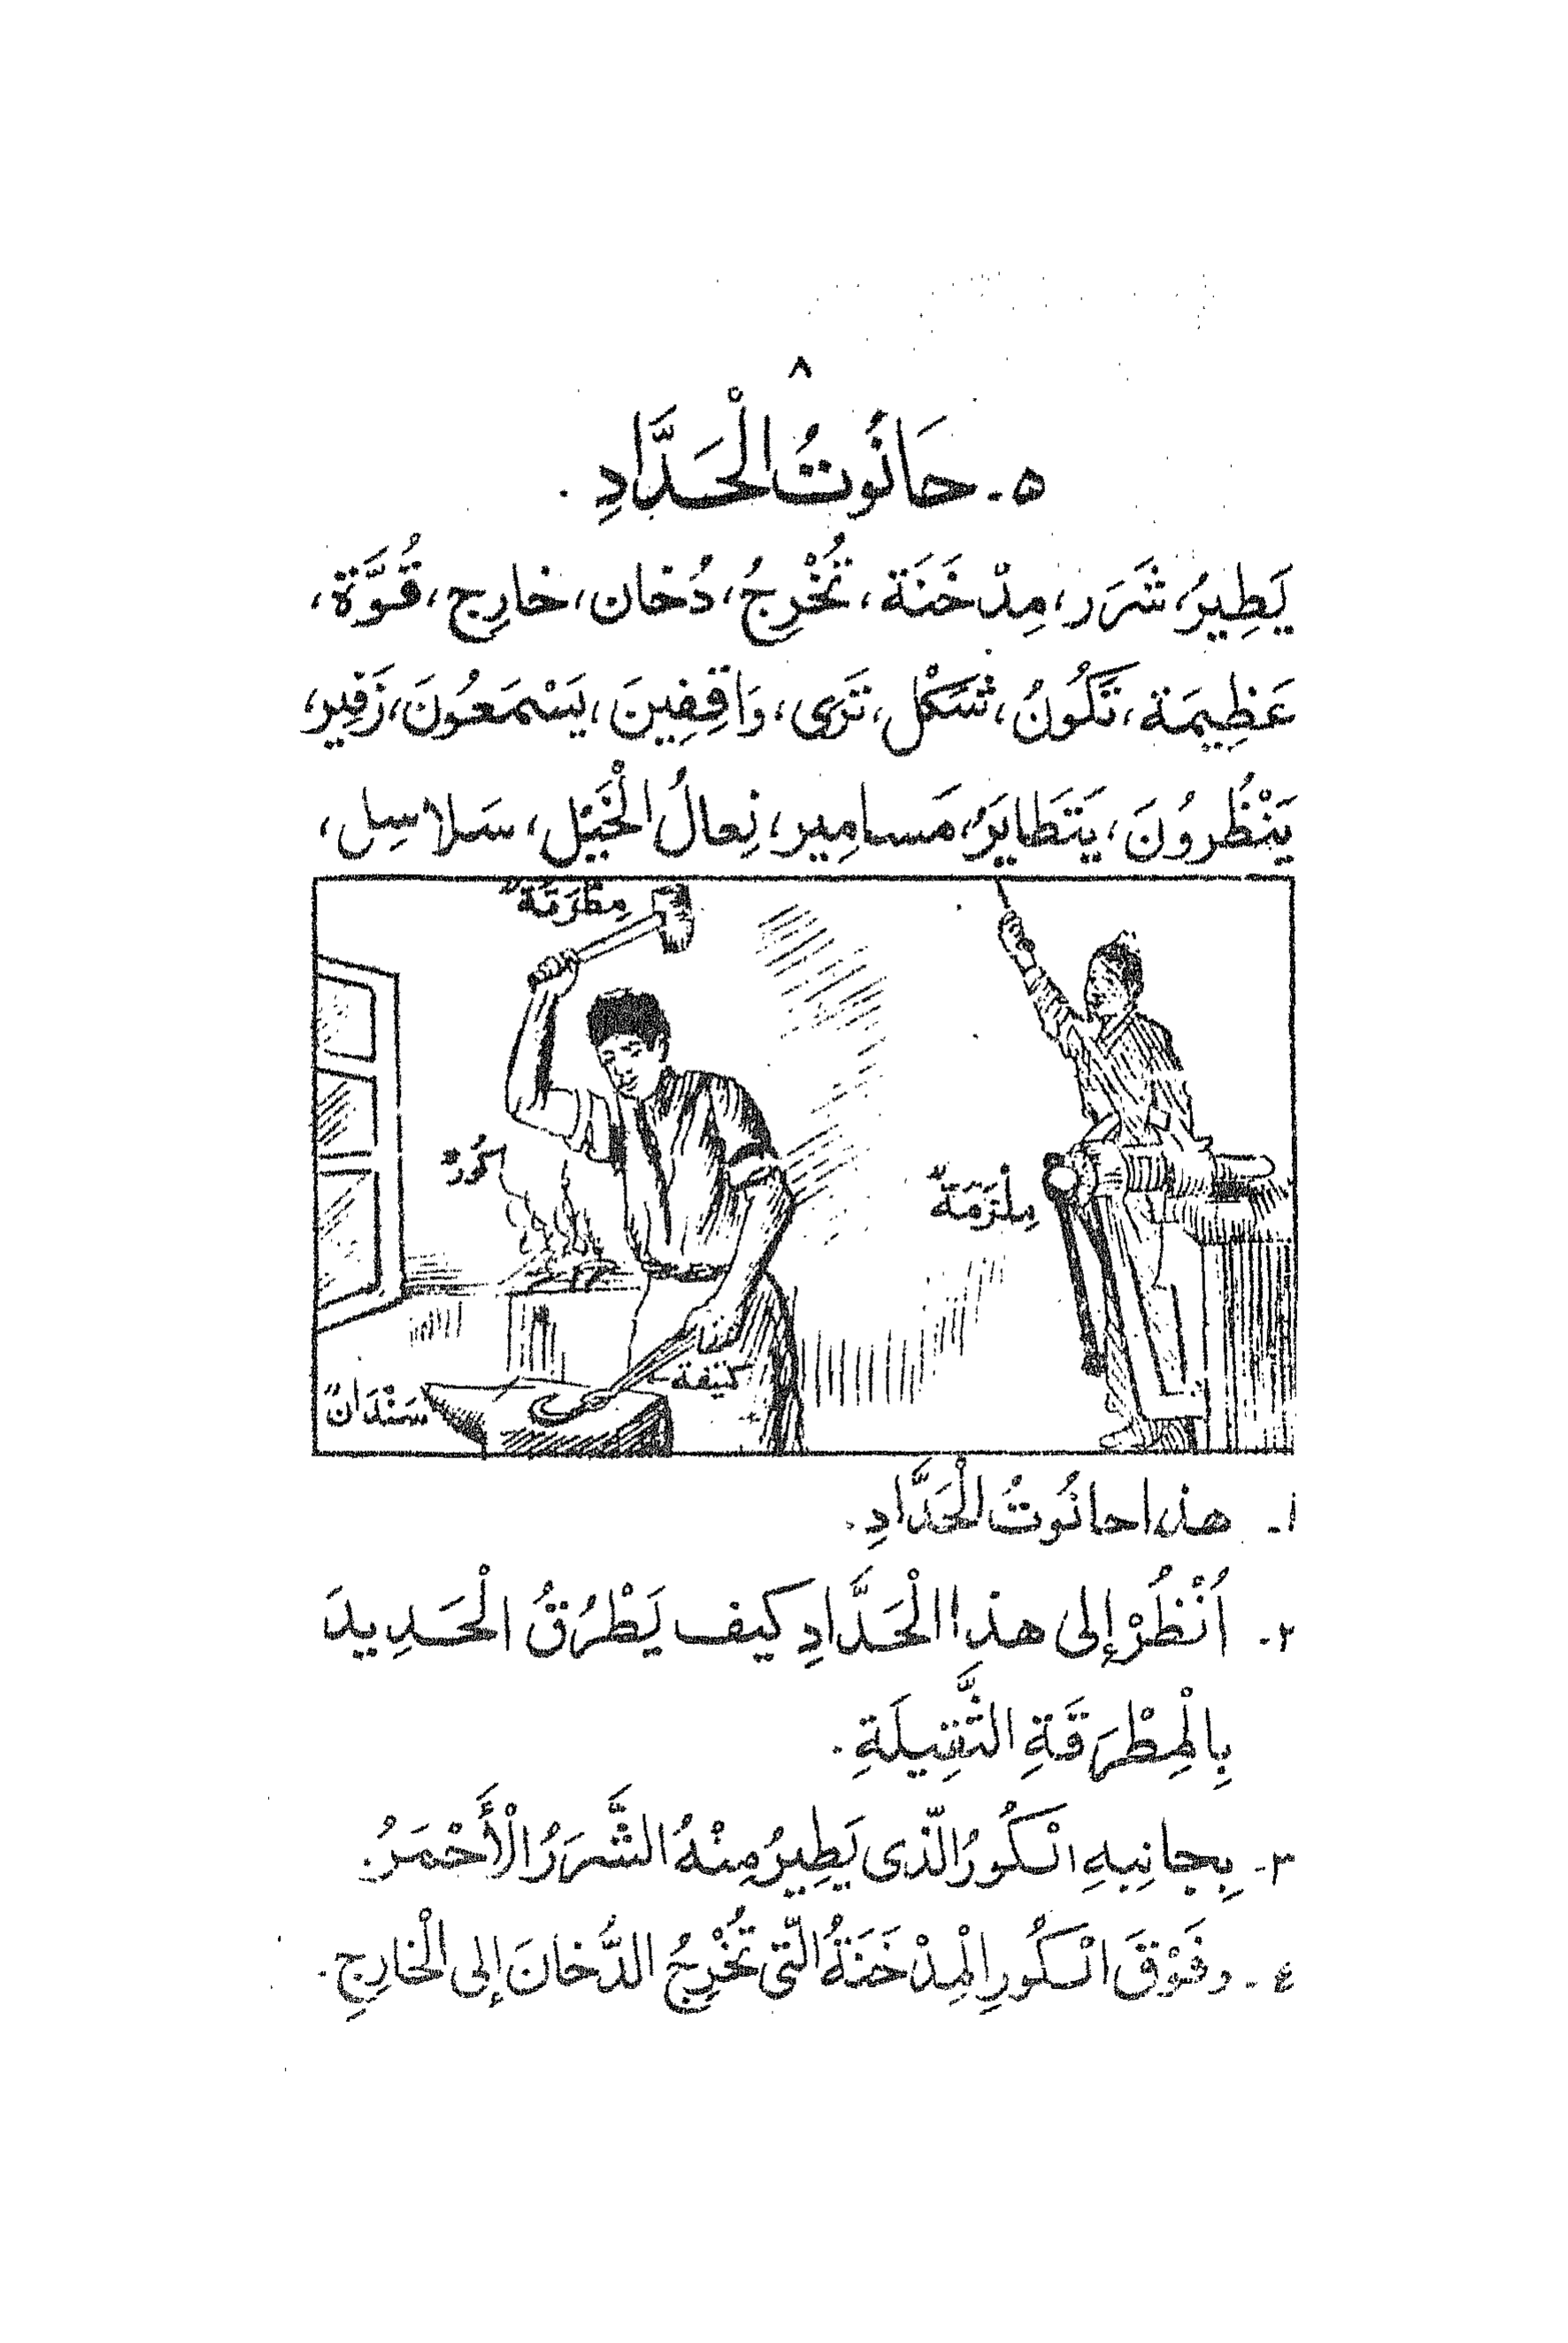 ٨
٥- حَانُوتُ الْحَدَّادِ.
يَطِيرُ، شَرَر، مِدْخَنَة، تُخْرِجُ، دُخان، خارِج، قُوَّة،
عَظِيمَة، تَكُونُ، شَكْل، تَرَى، وَاقِفِينَ، يَسْمَعُونَ، زَفِير،
يَنْظُرُونَ، يَتَطايَرُ، مَسامِير، نِعالُ الْخَيْل، سَلاسِل،
مِطْرَقَةٌ
كُورٌ
مِلْزَمَةٌ
كتيفة
سَنْدَانٌ
١- هذا حانُوتُ الْحَدَّادِ.
٢- اُنْظُرْ إلى هذا الْحَدَّادِ كيف يَطْرُقُ الْحَدِيدَ
بِالْمِطْرَقَةِ الثَّقِيلَةِ.
٣- بِجانِبِهِ الْكُورُ الّذى يَطِيرُ مِنْهُ الشَّرَرُ الْأَحْمَرُ.
٤- وفَوْقَ الْكُورِ الْمِدْخَنَةُ الّتى تُخْرِجُ الدُّخانَ إلى الْخارِجِ.